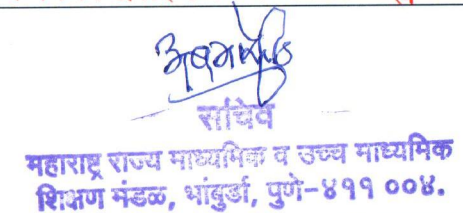 सचिव
महाराष्ट्र राज्य माध्यमिक व उच्च माध्यमिक
शिक्षण मंडळ, भांबुर्डा, पुणे-४११ ००४.